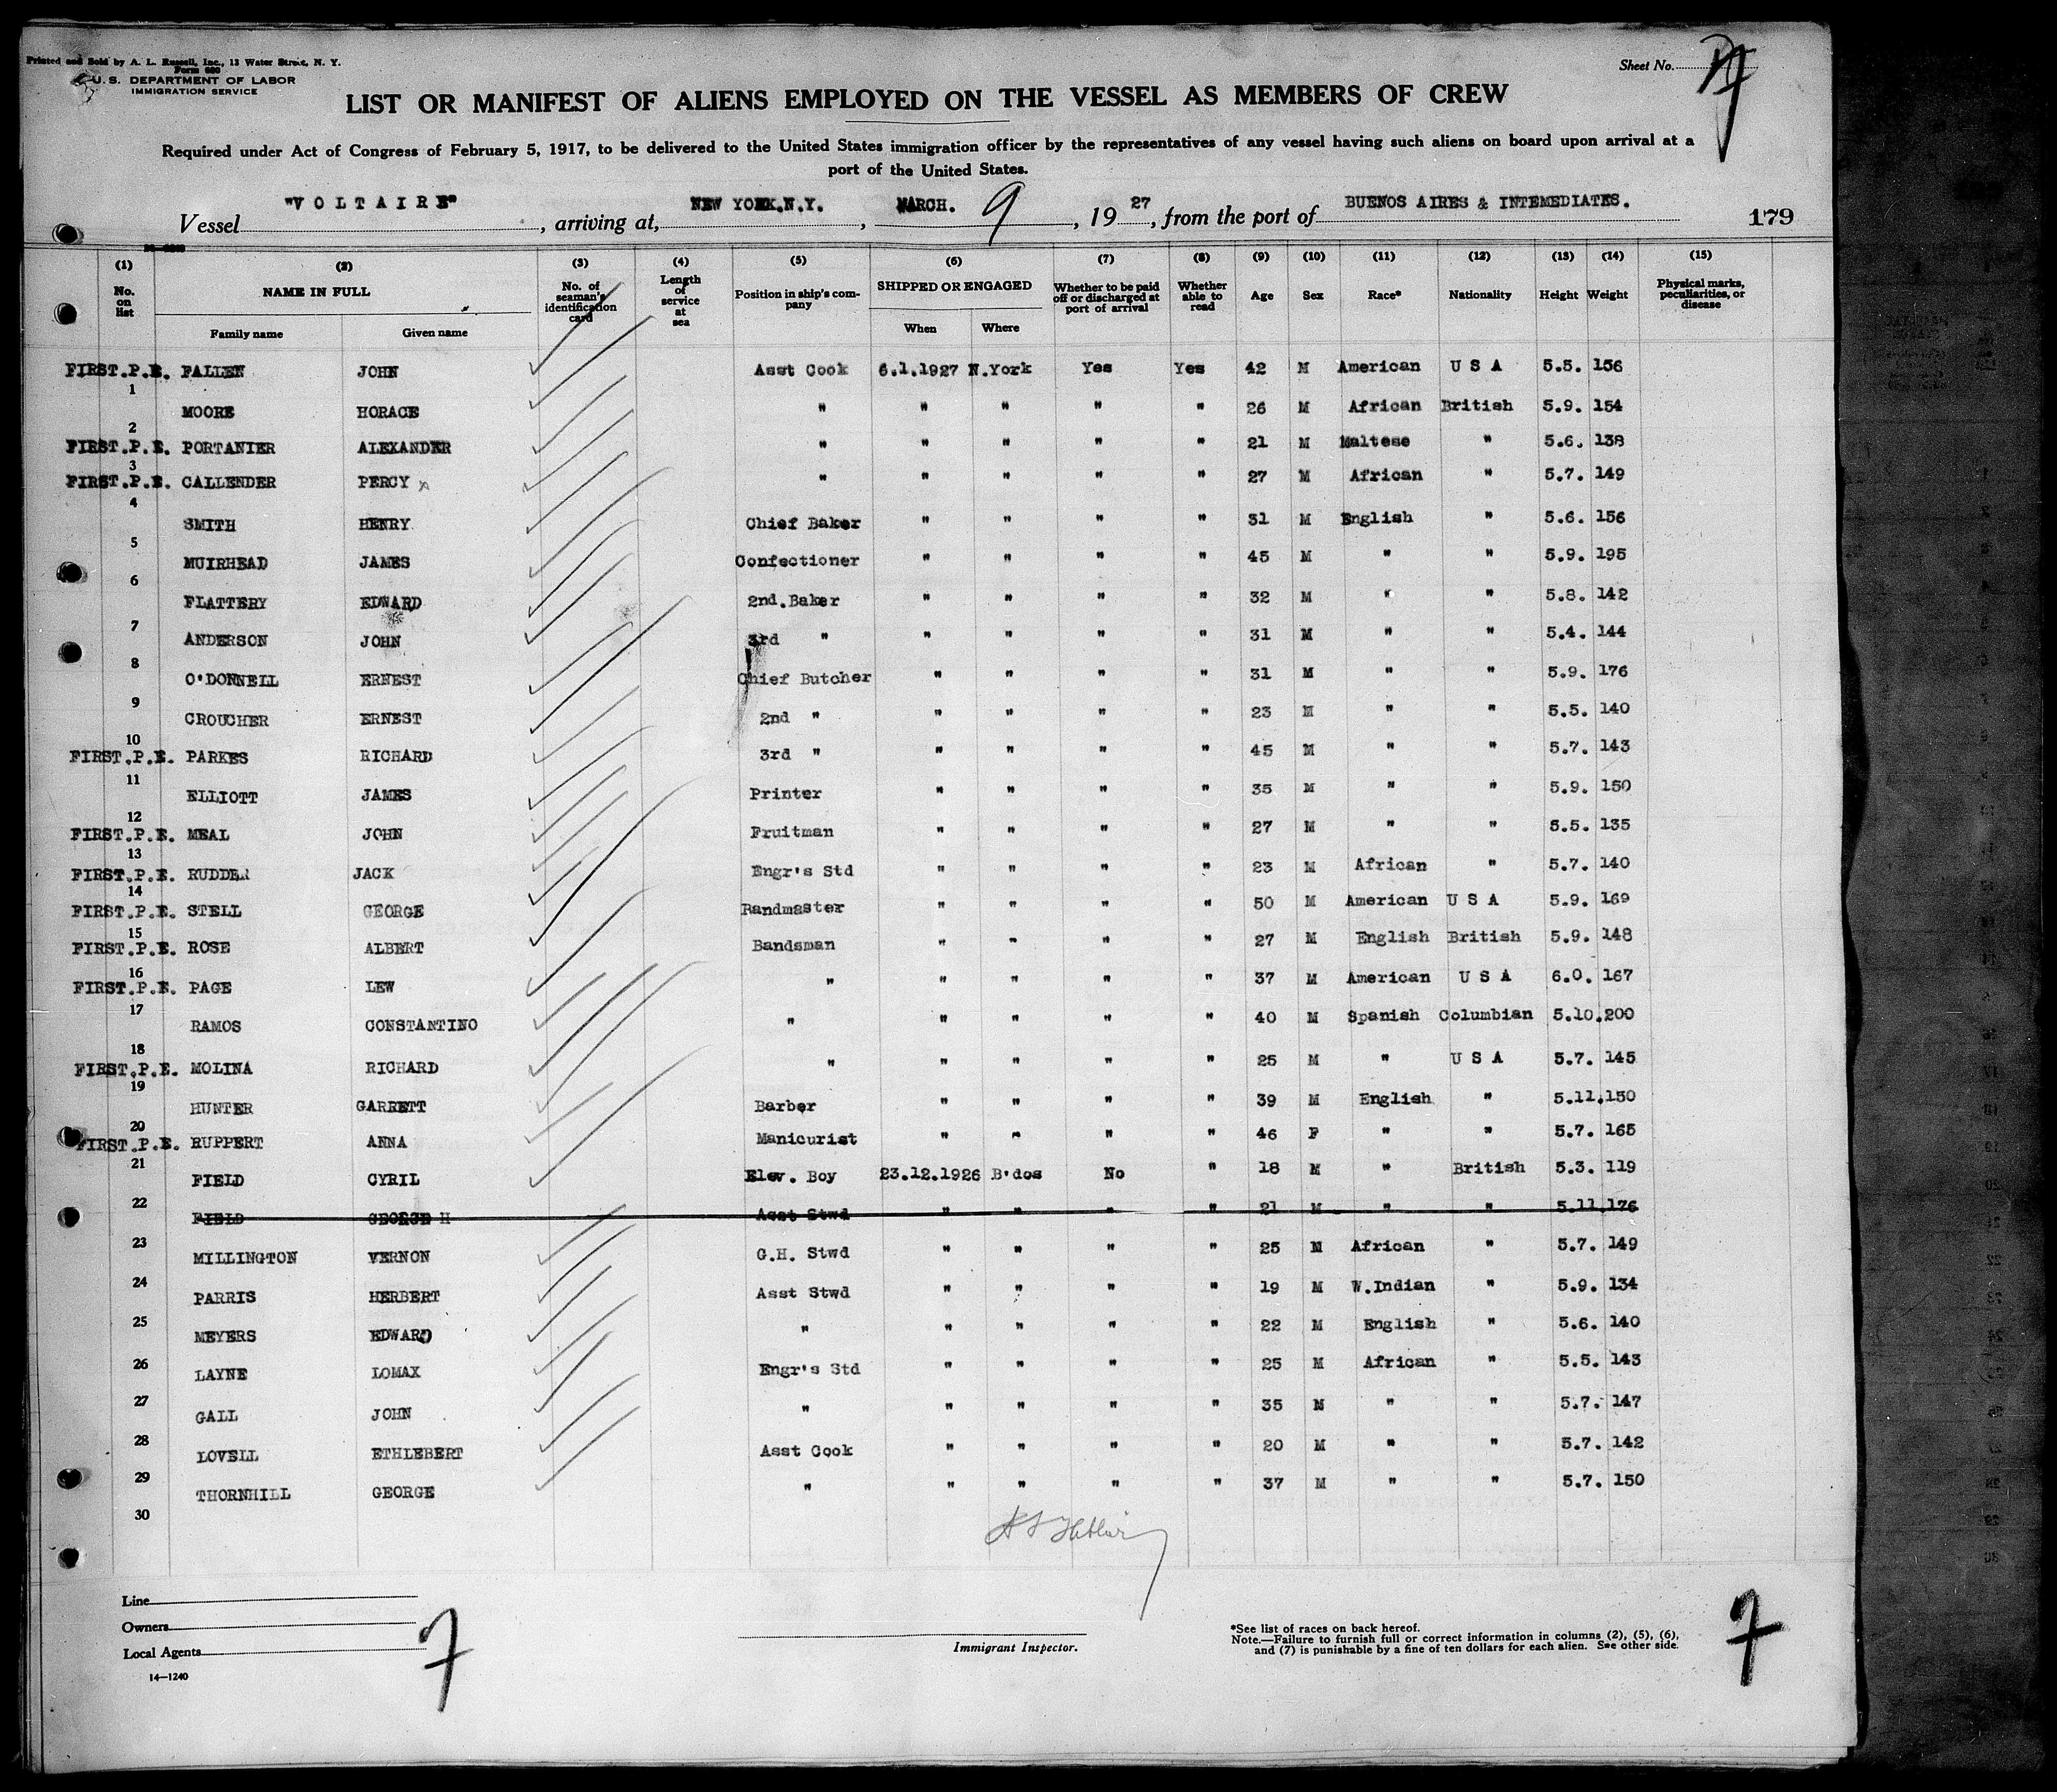 Printed and Sold by A. L. Russell, Inc., 13 Water Street, N. Y.
Form 680
U. S. DEPARTMENT OF LABOR
IMMIGRATION SERVICE
Sheet No.
LIST OR MANIFEST OF ALIENS EMPLOYED ON THE VESSEL AS MEMBERS OF CREW
Required under Act of Congress of February 5, 1917, to be delivered to the United States immigration officer by the representatives of any vessel having such aliens on board upon arrival at a
port of the United States.
Vessel "VOLTAIRE", arriving at, NEW YORK.N.Y., MARCH. 9, 1927, from the port of BUENOS AIRES & INTEMEDIATES. 179
(1) (2) (3) (4) (5) (6) (7) (8) (9) (10) (11) (12) (13) (14) (15)
No. on list NAME IN FULL Family name Given name No. of seaman's identification card Length of service at sea Position in ship's company SHIPPED OR ENGAGED When Where Whether to be paid off or discharged at port of arrival Whether able to read Age Sex Race* Nationality Height Weight Physical marks, peculiarities, or disease
FIRST.P.E. FALLEN JOHN Asst Cook 6.1.1927 N.York Yes Yes 42 M American U S A 5.5. 156
1
MOORE HORACE " " " " " 26 M African British 5.9. 154
2
FIRST.P.E. PORTANIER ALEXANDER " " " " " 21 M Maltese " 5.6. 138
3
FIRST.P.E. CALLENDER PERCY x " " " " " 27 M African " 5.7. 149
4
SMITH HENRY Chief Baker " " " " 31 M English " 5.6. 156
5
MUIRHEAD JAMES Confectioner " " " " 45 M " " 5.9. 195
6
FLATTERY EDWARD 2nd.Baker " " " " 32 M " " 5.8. 142
7
ANDERSON JOHN 3rd " " " " " 31 M " " 5.4. 144
8
O'DONNELL ERNEST Chief Butcher " " " " 31 M " " 5.9. 176
9
CROUCHER ERNEST 2nd " " " " " 23 M " " 5.5. 140
10
FIRST.P.E. PARKES RICHARD 3rd " " " " " 45 M " " 5.7. 143
11
ELLIOTT JAMES Printer " " " " 35 M " " 5.9. 150
12
FIRST.P.E. MEAL JOHN Fruitman " " " " 27 M " " 5.5. 135
13
FIRST.P.E. RUDDER JACK Engr's Std " " " " 23 M African " 5.7. 140
14
FIRST.P.E. STELL GEORGE Bandmaster " " " " 50 M American U S A 5.9. 169
15
FIRST.P.E. ROSE ALBERT Bandsman " " " " 27 M English British 5.9. 148
16
FIRST.P.E. PAGE LEW " " " " " 37 M American U S A 6.0. 167
17
RAMOS CONSTANTINO " " " " " 40 M Spanish Columbian 5.10.200
18
FIRST.P.E. MOLINA RICHARD " " " " " 25 M " U S A 5.7. 145
19
HUNTER GARRETT Barber " " " " 39 M English " 5.11.150
20
FIRST.P.E. RUPPERT ANNA Manicurist " " " " 46 F " " 5.7. 165
21
FIELD CYRIL Elev. Boy 23.12.1926 B'dos No " 18 M " British 5.3. 119
22
FIELD GEORGE H Asst Stwd " " " " 21 M " " 5.11.176
23
MILLINGTON VERNON G.H. Stwd " " " " 25 M African " 5.7. 149
24
PARRIS HERBERT Asst Stwd " " " " 19 M W.Indian " 5.9. 134
25
MEYERS EDWARD " " " " " 22 M English " 5.6. 140
26
LAYNE LOMAX Engr's Std " " " " 25 M African " 5.5. 143
27
GALL JOHN " " " " " 35 M " " 5.7. 147
28
LOVELL ETHLEBERT Asst Cook " " " " 20 M " " 5.7. 142
29
THORNHILL GEORGE " " " " " 37 M " " 5.7. 150
30
Line
Owners
Local Agents
14—1240
7
Immigrant Inspector.
*See list of races on back hereof.
Note.—Failure to furnish full or correct information in columns (2), (5), (6),
and (7) is punishable by a fine of ten dollars for each alien. See other side.
7